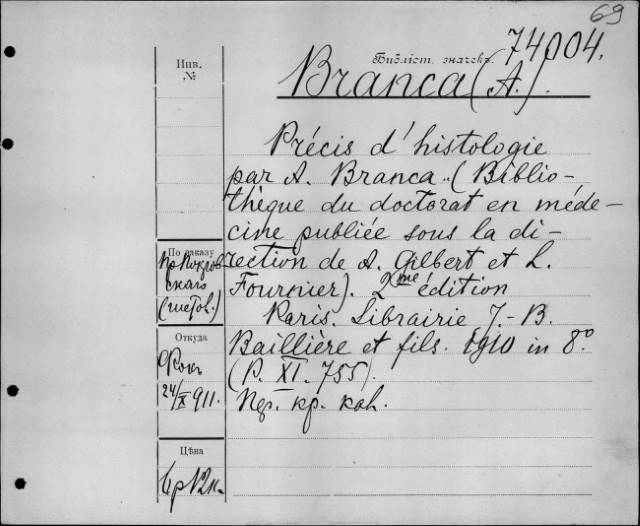 69
74004.
Библіот. значекъ.
Инв.
№
Branca (A.).
Précis d'histologie
par A. Branca. (Biblio-
thèque du doctorat en méde-
cine publiée sous la di-
rection de A. Gilbert et L.
Fournier). 2me édition
Paris. Librairie J.-B.
Baillière et fils. 1910 in 8º
(P. XI. 755).
Пер. кр. кож.
По заказу
пр Покров-
скаго
(гистол.)
Откуда
Фокъ
24/X 911.
Цѣна
6 р 12 к.